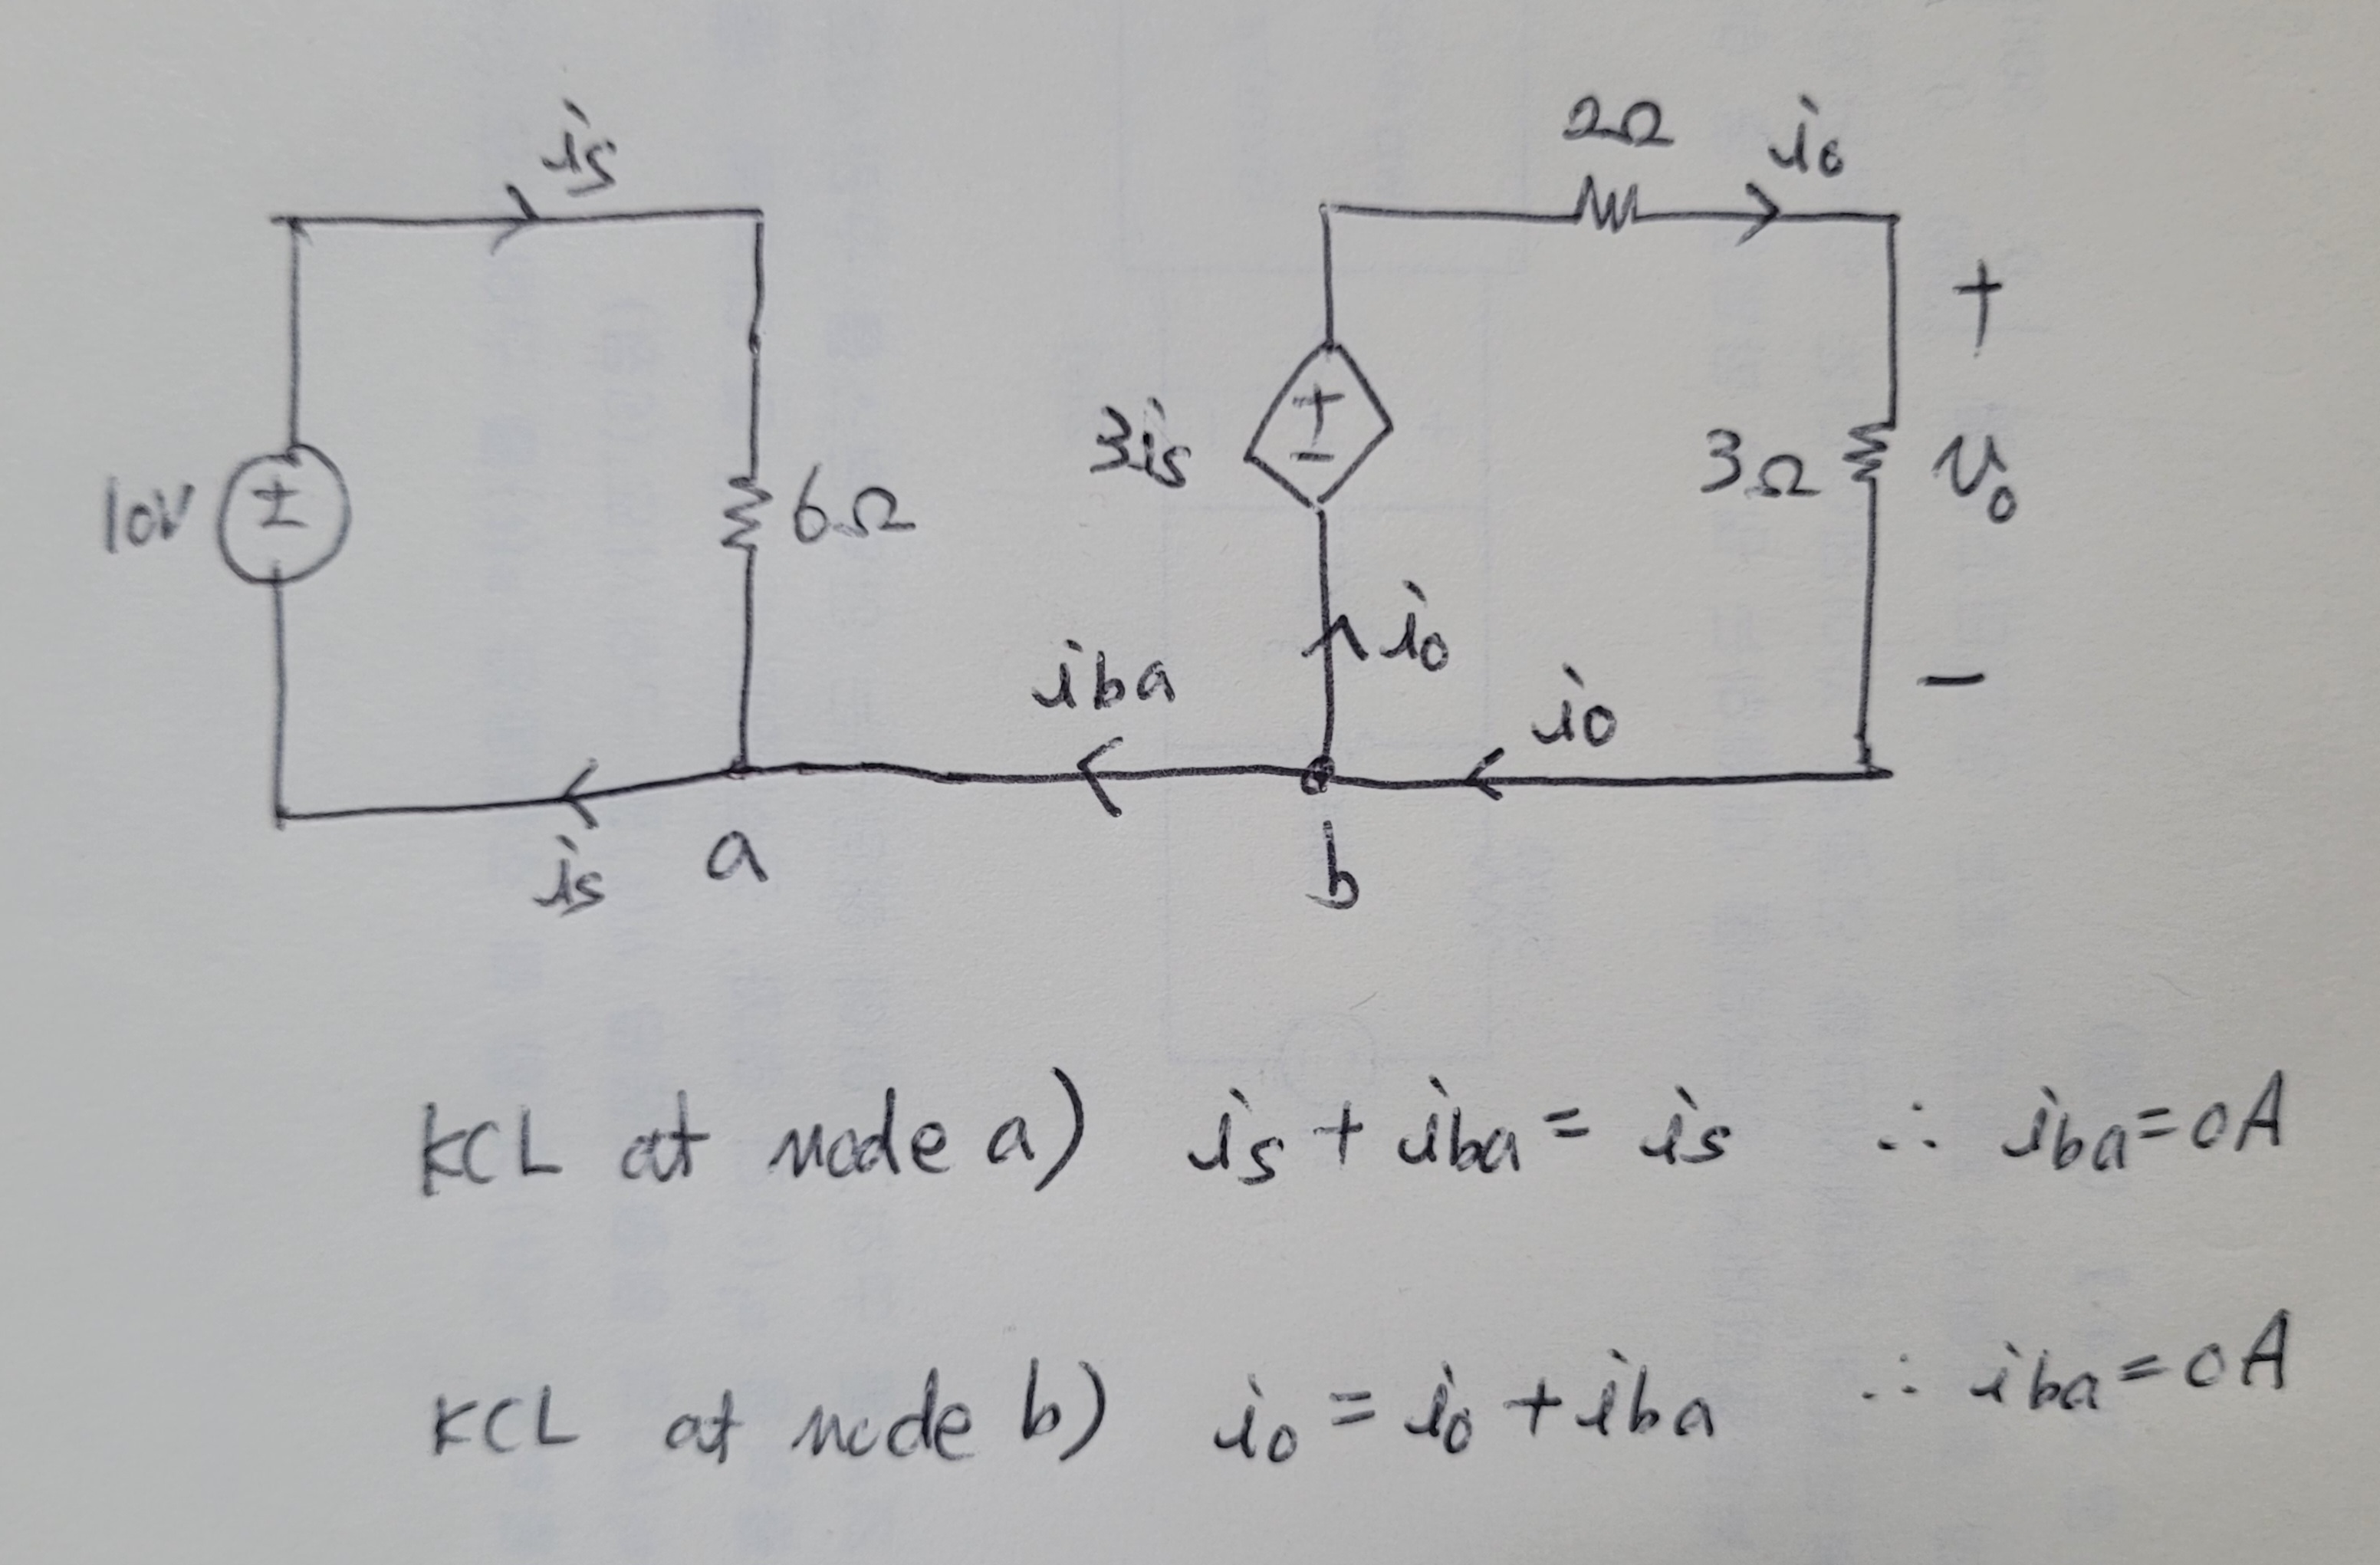 is
2Ω
io
10V
6Ω
3is
3Ω
+
vo
−
io
iba
io
is
a
b
KCL at node a) is + iba = is ∴ iba = 0A
KCL at node b) io = io + iba ∴ iba = 0A